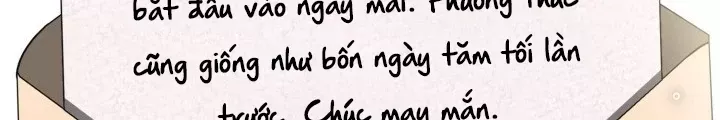 bắt đầu vào ngày mai. Phương thức
cũng giống như bốn ngày tăm tối lần
trước. Chúc may mắn.